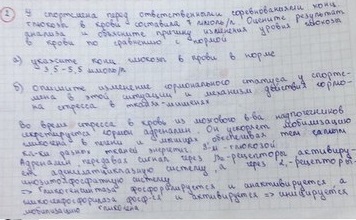 У спортсмена перед ответственными соревнованиями конц.
глюкозы в крови составила 7 ммоль/л. Оцените результат
анализа и объясните причину изменения уровня глюкозы
в крови по сравнению с нормой
а) укажите конц. глюкозы в крови в норме
3,5-5,5 ммоль/л
б) Опишите изменение гормонального статуса у спортс-
мена в этой ситуации и механизм действия гормо-
на стресса в тканях-мишенях
Во время стресса в кровь из мозгового в-ва надпочечников
секретируется гормон адреналин. Он ускоряет мобилизацию
гликогена в печени и мышцах обеспечивая тем самым
разных тканей энергетич. глюкозой
Адреналин передавая сигнал через рецепторы активиру-
ет аденилатциклазную систему а через рецепторы
инозитолфосфатную систему
гликогенсинтаза фосфорилируется и инактивируется а
гликогенфосфорилаза фосф-ся и активируется => инициируется
мобилизация гликогена